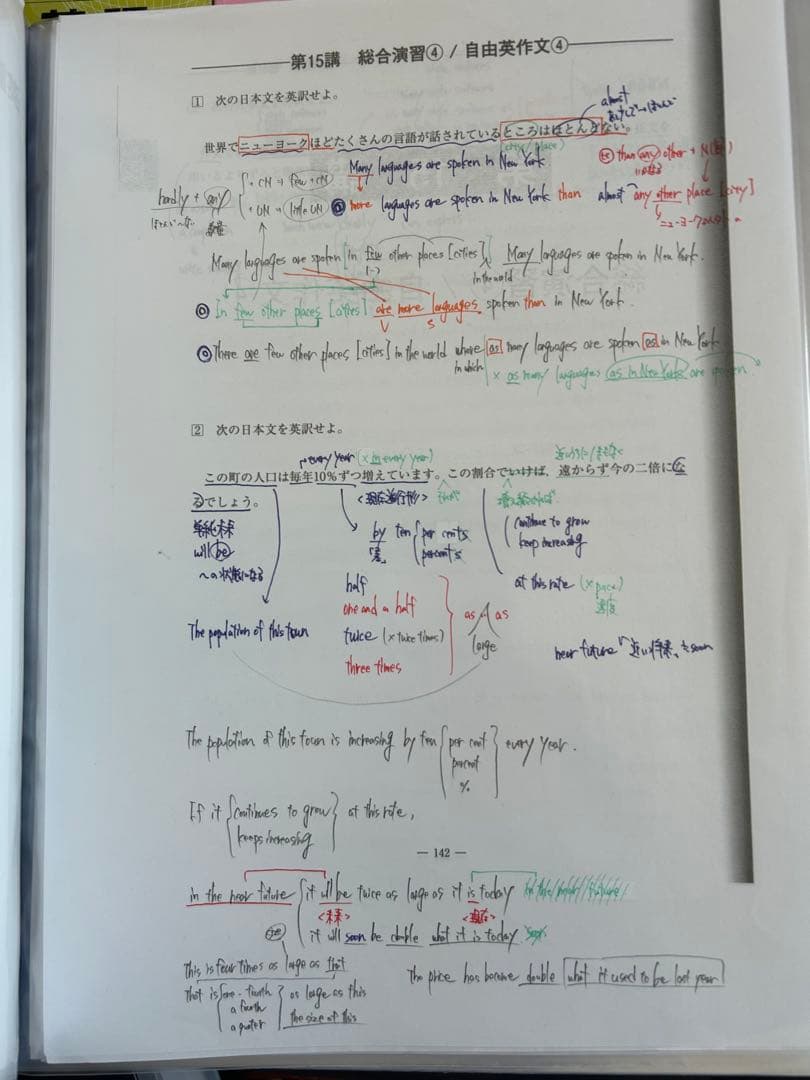 第15講 総合演習④ / 自由英作文④
1 次の日本文を英訳せよ。
almost
世界でニューヨークほどたくさんの言語が話されているところはほとんどない。
(city/place)
Many languages are spoken in New York
than any other + N
hardly + any
CN → few + CN
UN → little UN
more languages are spoken in New York than almost any other place [city]
Many languages are spoken in few other places [cities] Many languages are spoken in New York.
in the world
In few other places [cities] are more languages spoken than in New York.
V S
There are few other places [cities] in the world where as many languages are spoken as in New York
in which
× as many languages as in New York are spoken
2 次の日本文を英訳せよ。
every year (× in every year)
この町の人口は毎年10%ずつ増えています。この割合でいけば、遠からず今の二倍になるでしょう。
<現在進行形>
will be
〜の状態になる
by ten per cents percents
「差」
continue to grow
keep increasing
at this rate (× pace)
速度
half
one and a half
twice (× twice times)
three times
as as
large
The population of this town
near future 「近い将来」 soon
The population of this town is increasing by ten per cent percent % every year.
If it continues to grow keeps increasing at this rate,
— 142 —
in the near future it will be twice as large as it is today
<未来> <現在>
it will soon be double what it is today
This is four times as large as that
That is one-fourth as large as this
a fourth
a quarter the size of this
The price has become double what it used to be last year